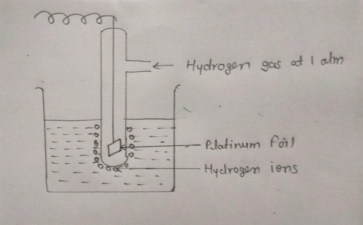 Hydrogen gas at 1 atm
Platinum foil
Hydrogen ions